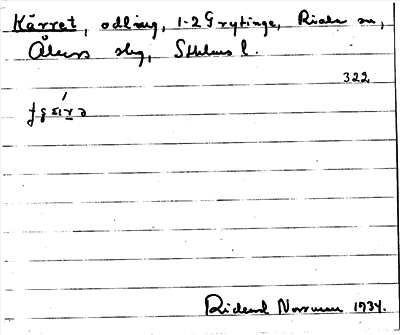 Kärret, odling, 1-2 Grytinge, Riala sn,
Åkers slg, Sthlms l.
322
Rickard Norrman 1934.